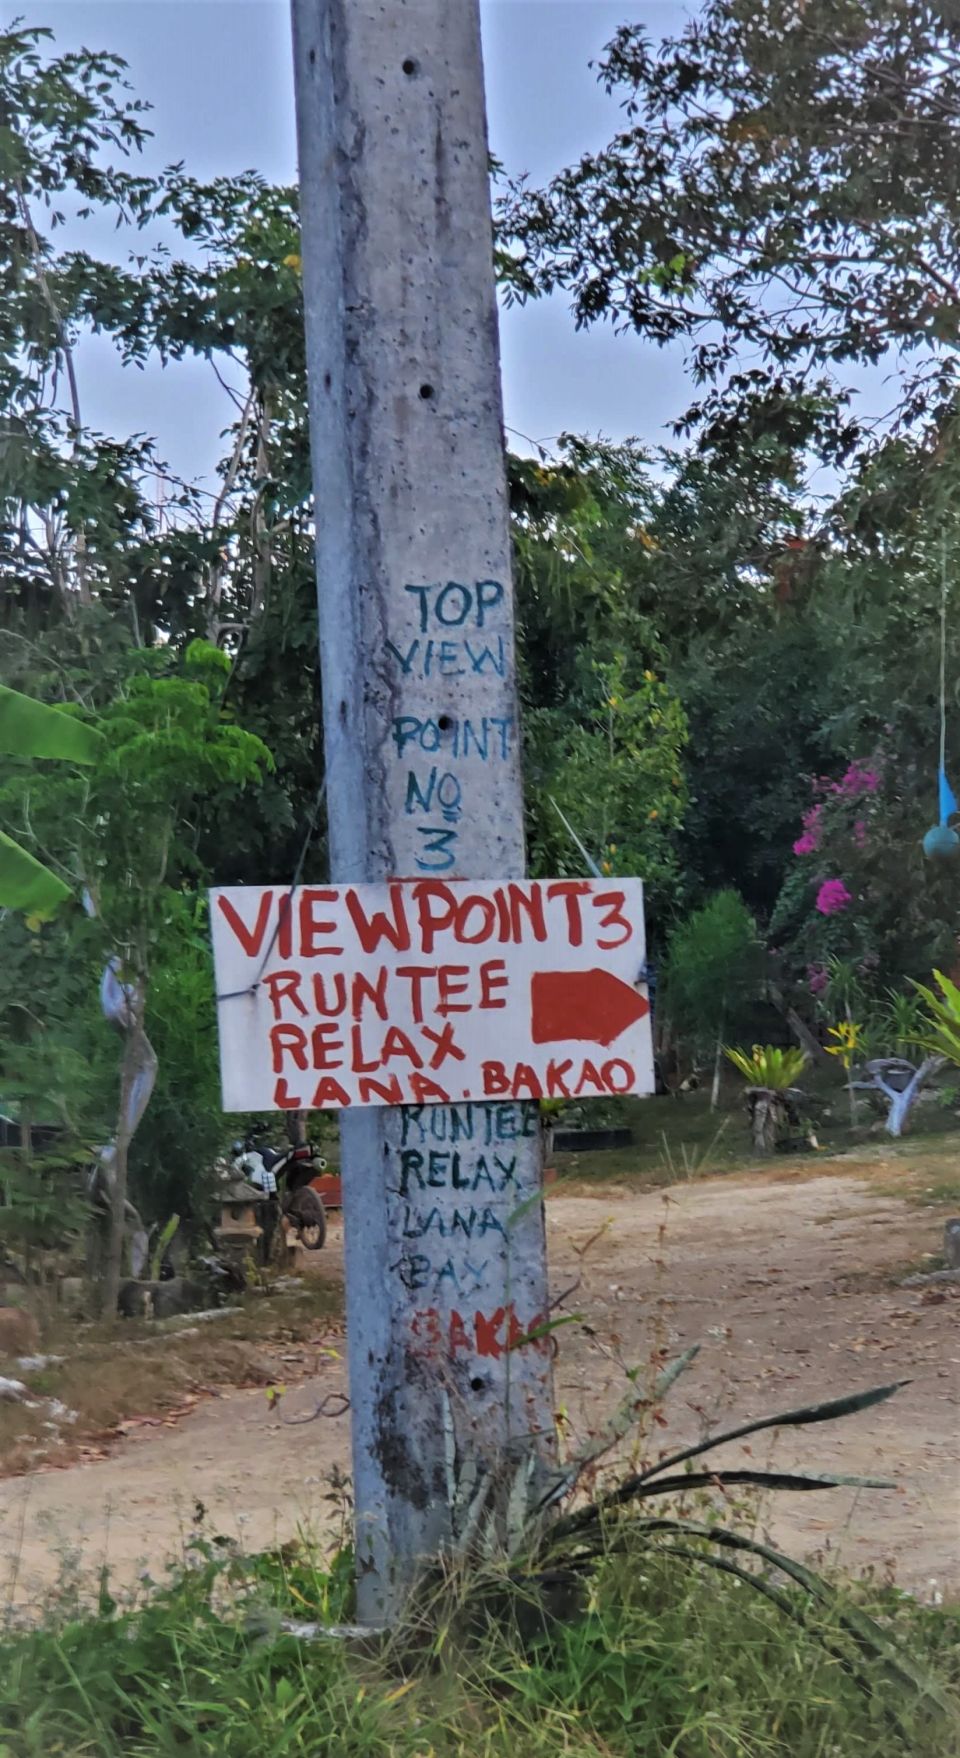 TOP
VIEW
POINT
Nº
3
VIEWPOINT3
RUNTEE
RELAX
LANA. BAKAO
RUNTEE
RELAX
LANA
BAY
BAKAO